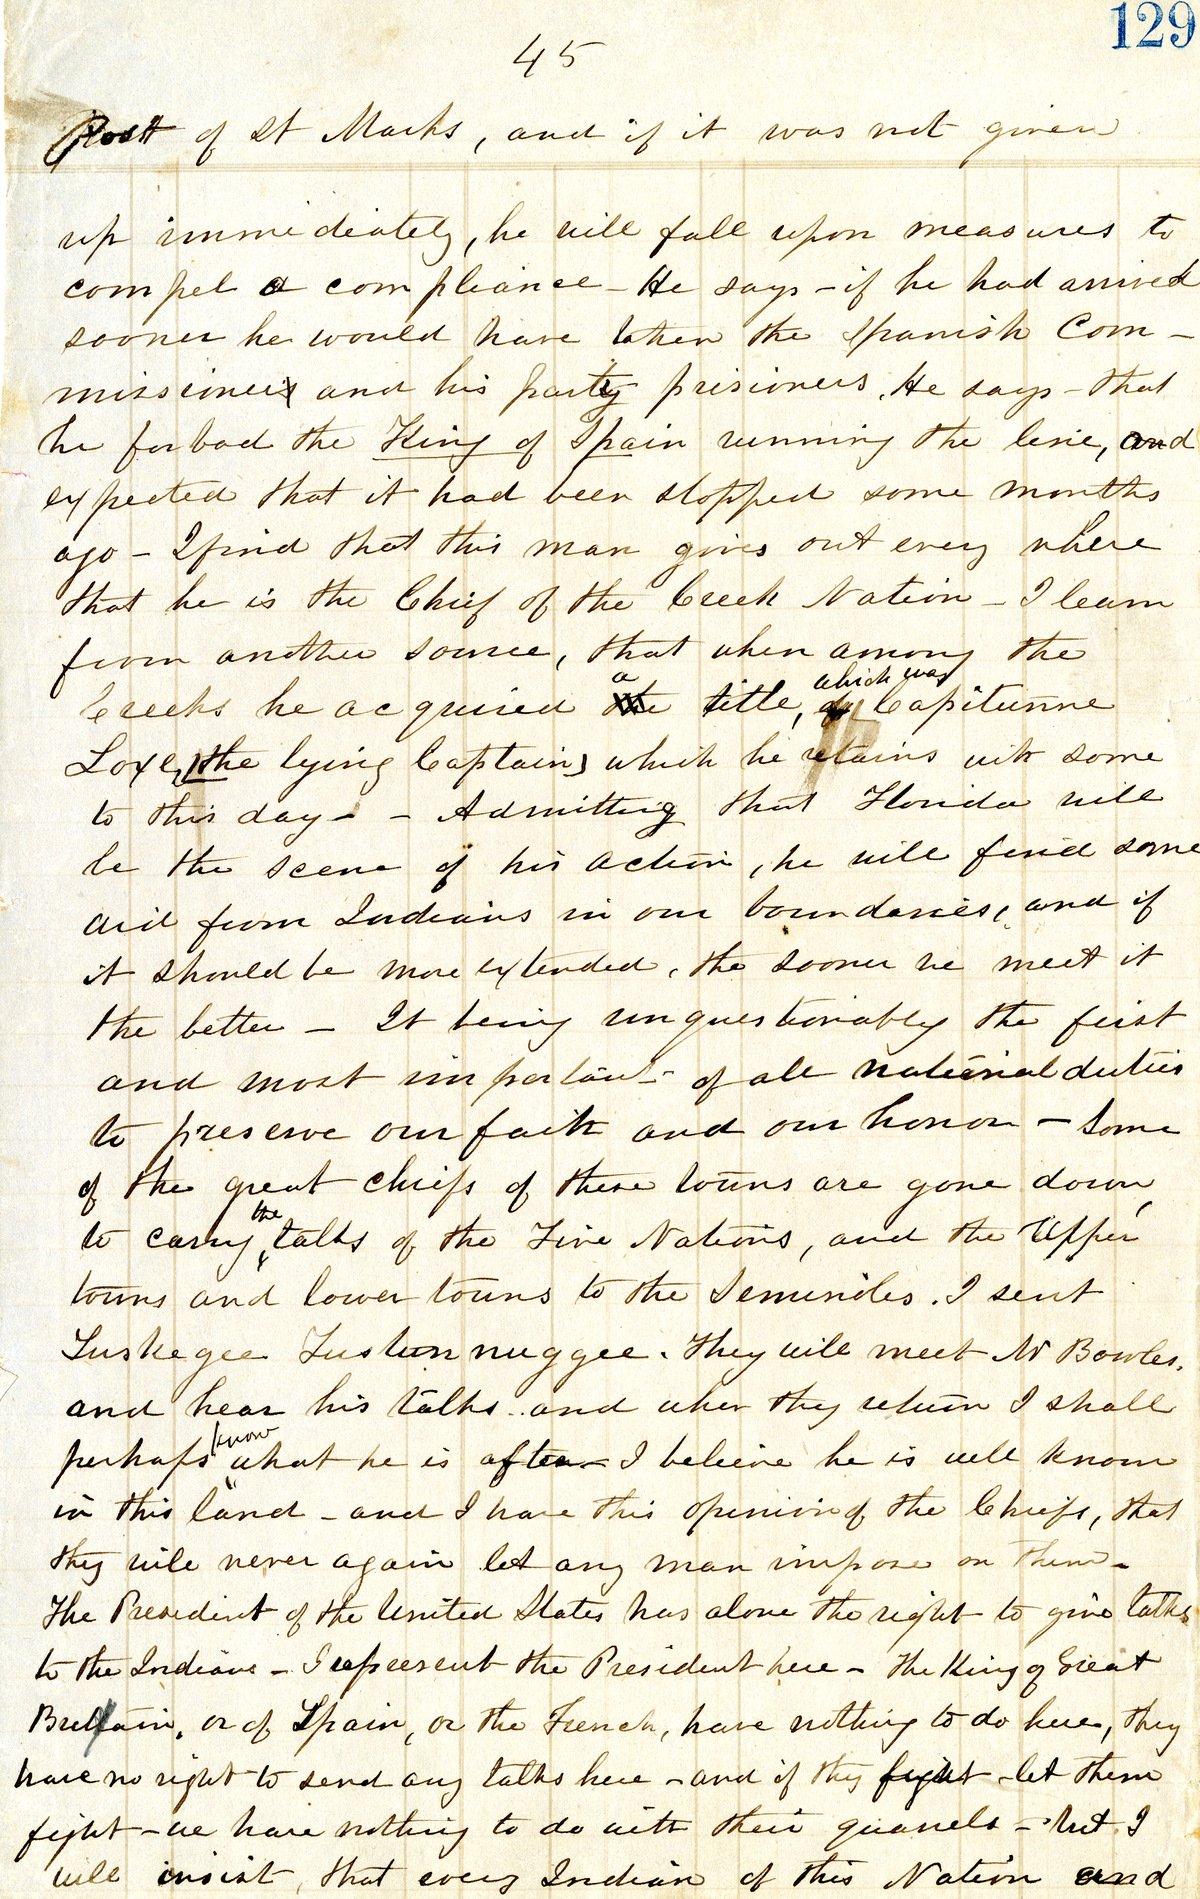 129
45
Post of St Marks, and if it was not given
up immediately, he will fall upon measures to
compel a compliance - He says - if he had arrived
sooner he would have taken the Spanish Com-
missioner and his party prisioners. He says - that
he forbad the King of Spain running the line, and
expected that it had been stopped some months
ago - I find that this man gives out every where
that he is the Chief of the Creek Nation - I learn
from another source, that when among the
Creeks he acquired a title, which was Capitunne
Loxe, (the lying Captain) which he retains with some
to this day - - Admitting that Florida will
be the scene of his action, he will find some
aid from Indians in our boundaries, and if
it should be more extended, the sooner we meet it
the better - It being unquestionably the first
and most important - of all national duties
to preserve our faith and our honor - Some
of the great chiefs of these towns are gone down,
to carry the talks of the Five Nations, and the Upper
towns and lower towns to the Seminoles. I sent
Tuskegee Tustunnuggee. They will meet Mr Bowles,
and hear his talks and when they return I shall
perhaps know what he is after - I believe he is well known
in this land - and I have this opinion of the Chiefs, that
they will never again let any man impose on them -
The President of the United States has alone the right to give talks
to the Indians - I represent the President here - The King of Great
Britain, or of Spain, or the French, have nothing to do here, they
have no right to send any talks here - and if they fight - let them
fight - we have nothing to do with their quarrels - but I
will insist, that every Indian of this Nation and